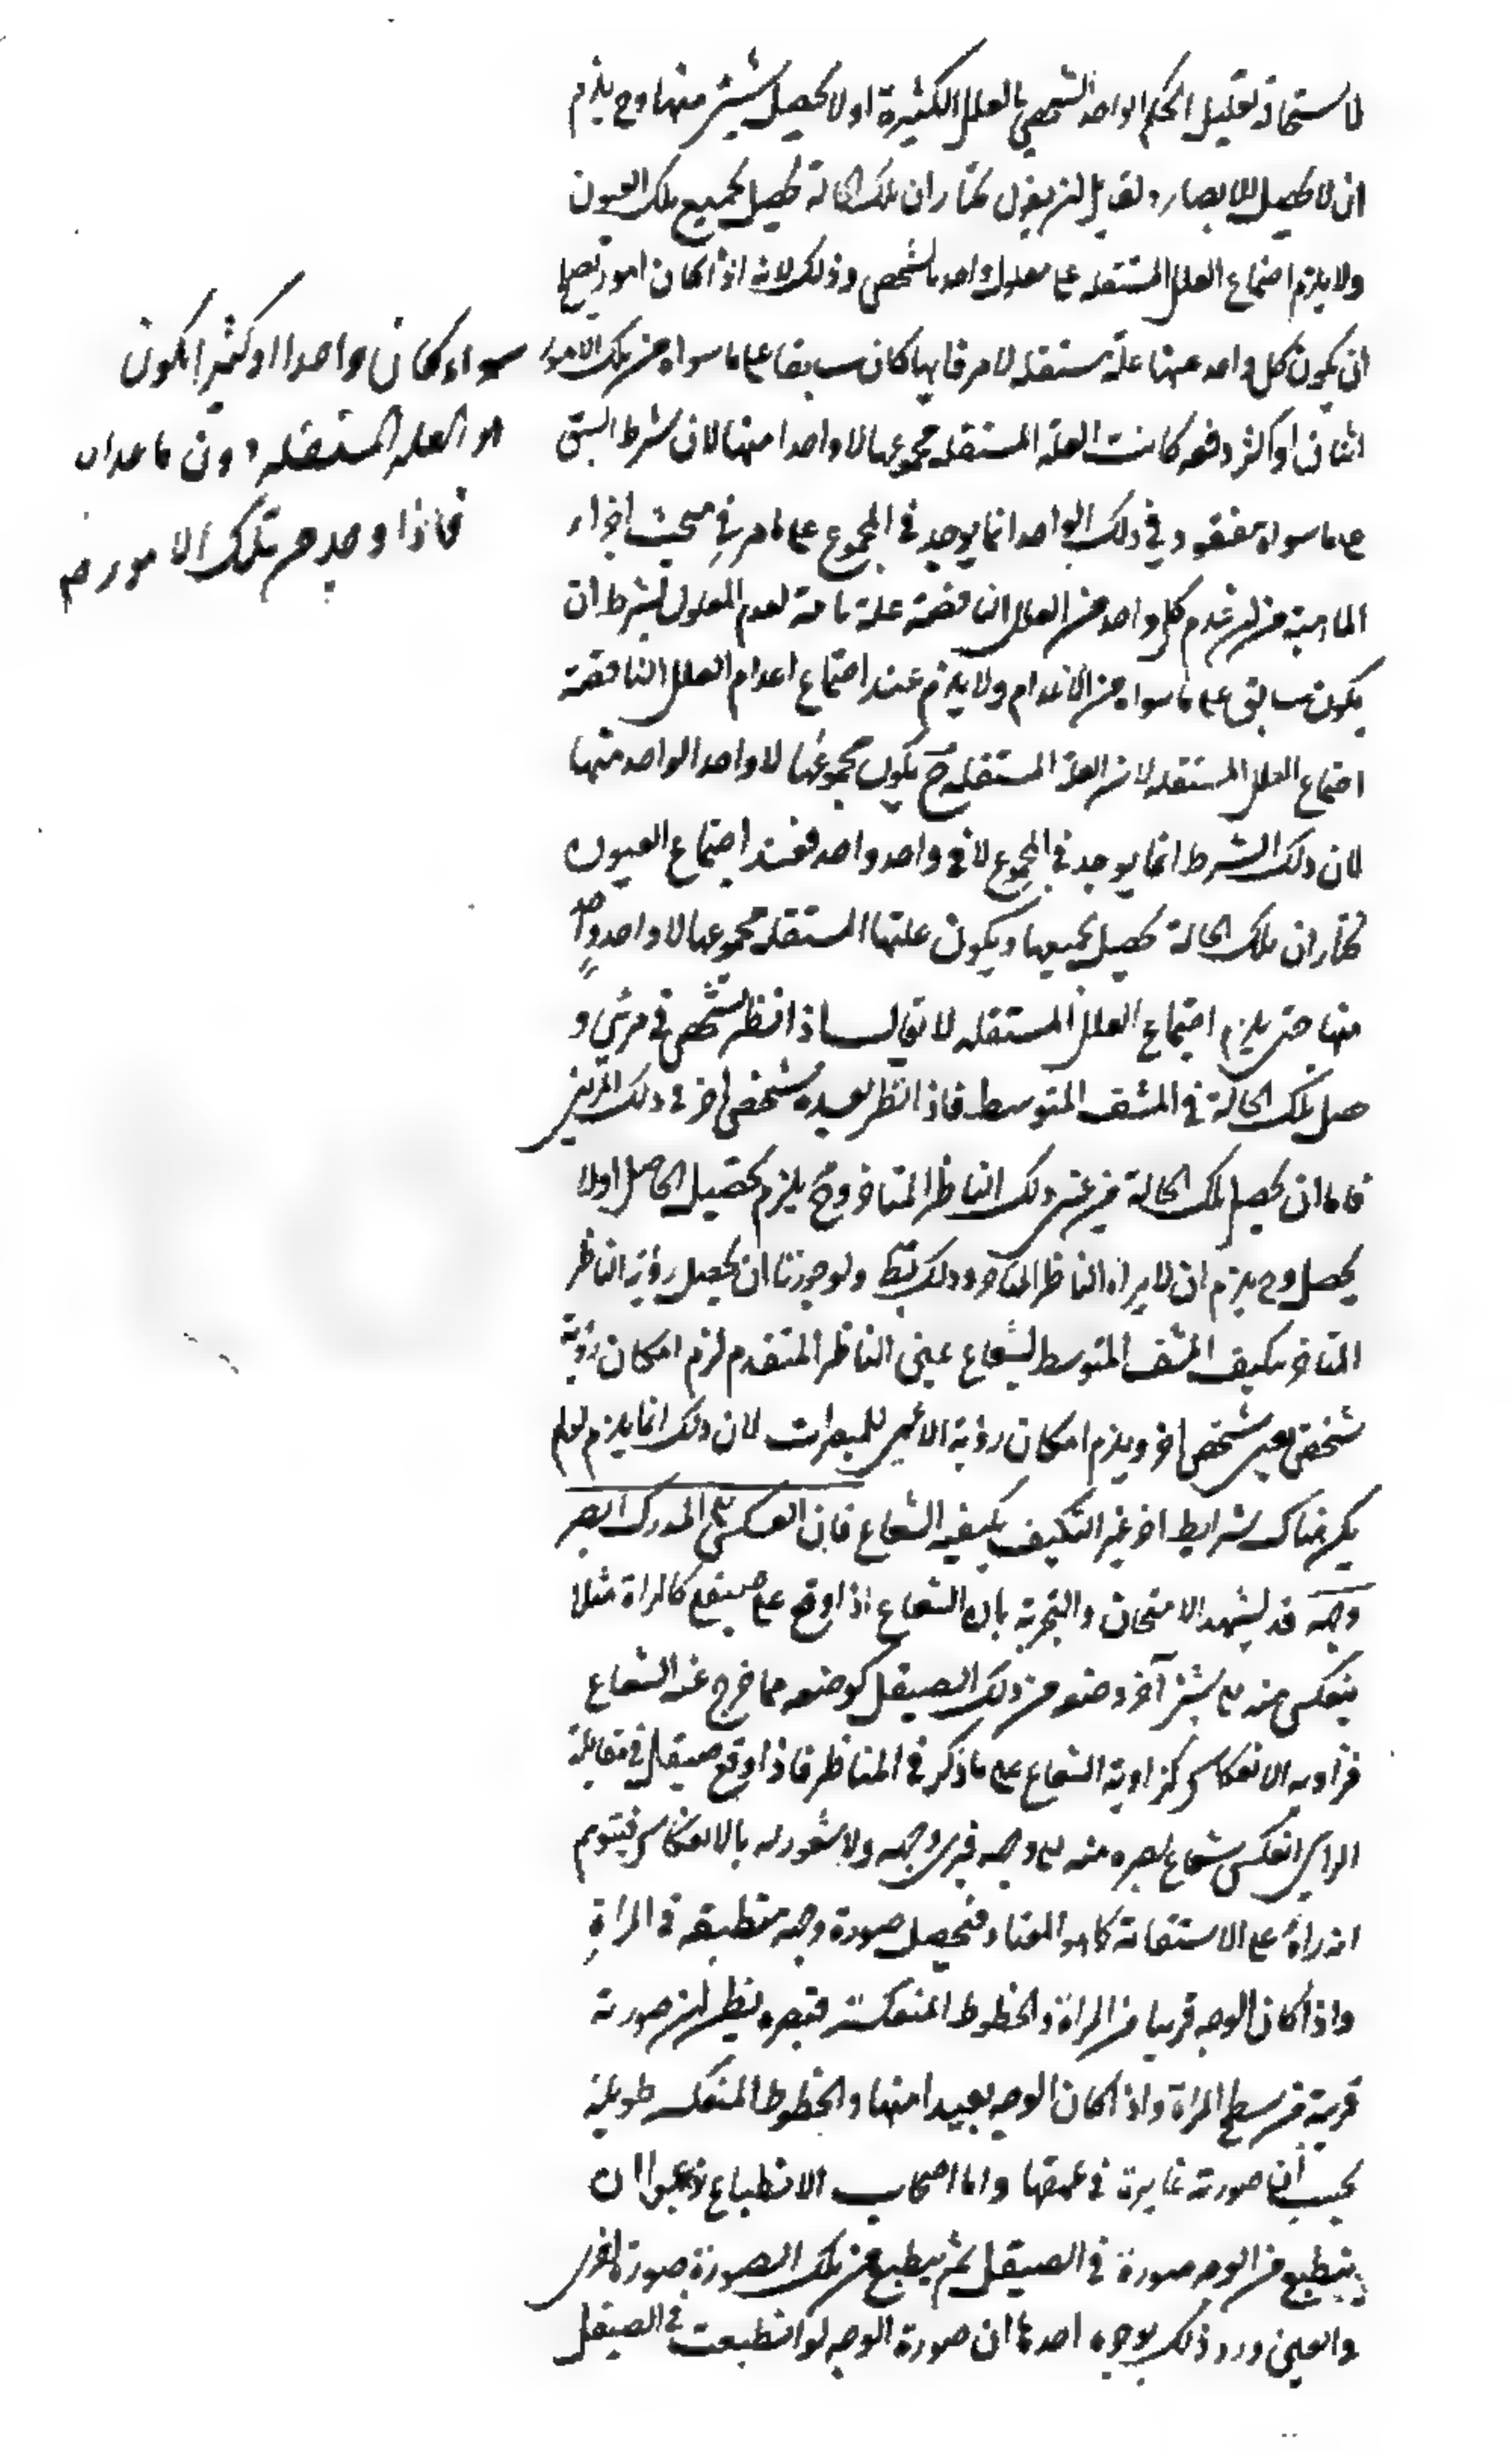 لاستحالة تعليل الحكم الواحد الشخصي بالعلل الكثيرة او لا يحصل بشيئ منها وح يلزم
ان لا يحصل الابصار ولقايل ان يقول نختار ان تلك الحالة تحصل بجميع تلك العيون
ولا يلزم اجتماع العلل المستقله على معلول واحد بالشخص وذلك لانه اذا كان امور تصلح
ان يكون كل واحد منها علة مستقله لامر فايها كان سابقا على ما سواه من تلك الامور
سواء كان واحدا او كثيرا يكون
هو العله المستقله دون ما عداه
فاذا وجد من تلك الامور
اثنان او اكثر دفعه كانت العلة المستقله مجموعها لا واحدا منها لان شرط السبق
على ما سواه مفقود في ذلك الواحد انما يوجد في المجموع على ما مر في مبحث اجزاء
الماهية من ان عدم كل واحد من العلل الناقصة علة تامة لعدم المعلول بشرط ان
يكون سابق على ما سواه من الاعدام ولا يلزم عند اجتماع اعدام العلل الناقصة
اجتماع العلل المستقله لان العلة المستقله ح يكون مجموعها لا واحد الواحد منها
لان ذلك الشرط انما يوجد في المجموع لا في واحد واحد فعند اجتماع العيون
نختار ان تلك الحالة تحصل بجميعها ويكون علتها المستقله مجموعها لا واحد واحد
منها حتى يلزم اجتماع العلل المستقله لا يقال اذا نظر شخص في مرئي و
حصل تلك الحالة في المشف المتوسط فاذا نظر بعده شخص اخر في ذلك المرئي
فاما ان يحصل تلك الحالة من عين ذلك الناظر المتاخر وح يلزم تحصيل الحاصل او لا
يحصل وح يلزم ان لا يراه الناظر المتاخر وذلك بط ولو جوزنا ان يحصل رؤية الناظر
المتاخر بتكيف المشف المتوسط بشعاع عين الناظر المتقدم لزم امكان رؤية
شخص بعين شخص اخر ويلزم امكان رؤية الاعمى للمبصرات لان ذلك انما يلزم لو لم
يكن هناك شرايط اخر غير التكيف بكيفية الشعاع فان العكس المدرك البصر
وجهه قد يشهد الامتحان والتجربة بان الشعاع اذا وقع على صيقل كالمراة مثلا
ينعكس منه على شيئ آخر وضعه من ذلك الصيقل كوضعه مما خرج عنه الشعاع
فزاويه الانعكاس كزاوية الشعاع على ما ذكر في المناظر فاذا وقع صيقل في مقابلة
الرائي انعكس شعاع بصره منه على وجهه فيرى وجهه ولا شعور له بالانعكاس فيتوهم
انه راه على الاستقامة كما هو المعتاد فيحصل صورة وجهه منطبقه في المراة
واذا كان الوجه قريبا من المراة والخطوط المنعكسة قصيره يظن ان صورته
قريبة من سطح المراة واذا كان الوجه بعيدا منها والخطوط المنعكسه طويلة
يحسب ان صورته غايرة في عمقها واما اصحاب الانطباع زعموا ان
ينطبع من الوجه صورة في الصيقل ثم ينطبع من تلك الصورة صورة اخرى
في العين ورد ذلك بوجوه احدها ان صورة الوجه لو انطبعت في الصيقل